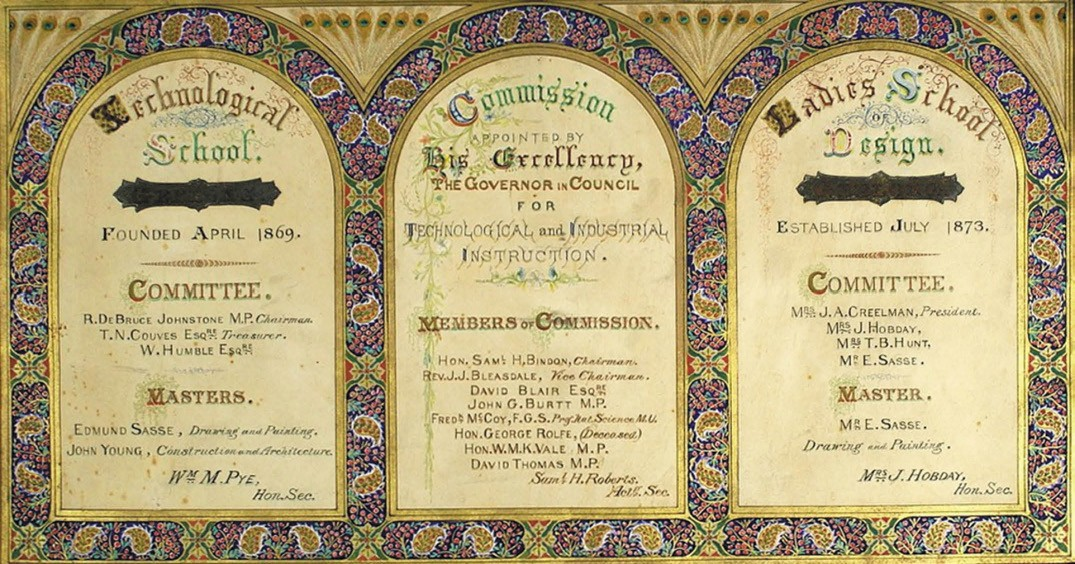 Technological
School.
FOUNDED APRIL 1869.
COMMITTEE.
R. DeBRUCE JOHNSTONE M.P. Chairman.
T. N. COUVES ESQRE Treasurer.
W. HUMBLE ESQRE
MASTERS.
EDMUND SASSE, Drawing and Painting.
JOHN YOUNG, Construction and Architecture.
WM M. PYE,
Hon. Sec.
Commission
APPOINTED BY
His Excellency,
THE GOVERNOR IN COUNCIL
FOR
TECHNOLOGICAL and INDUSTRIAL
INSTRUCTION.
MEMBERS OF COMMISSION.
HON. SAML H. BINDON, Chairman.
REV. J. J. BLEASDALE, Vice Chairman.
DAVID BLAIR ESQRE
JOHN G. BURTT M.P.
FREDD McCOY, F.G.S. Prof. Nat. Science M.U.
HON. GEORGE ROLFE, (Deceased)
HON. W. M. K. VALE, M.P.
DAVID THOMAS M.P.
Saml H. Roberts.
Sec.
Ladies School
OF
Design.
ESTABLISHED JULY 1873.
COMMITTEE.
MRS J. A. CREELMAN, President.
MRS J. HOBDAY,
MRS T. B. HUNT,
MR E. SASSE.
MASTER.
MR E. SASSE.
Drawing and Painting.
MRS J. HOBDAY,
Hon. Sec.